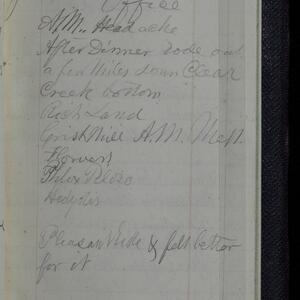 Office
A.M., Headache
After Dinner rode out
a few miles down Clear
Creek bottom
Rich Land
Grist Mill A.M.
flowers
Phlox
Pleasant ride & felt better
for it